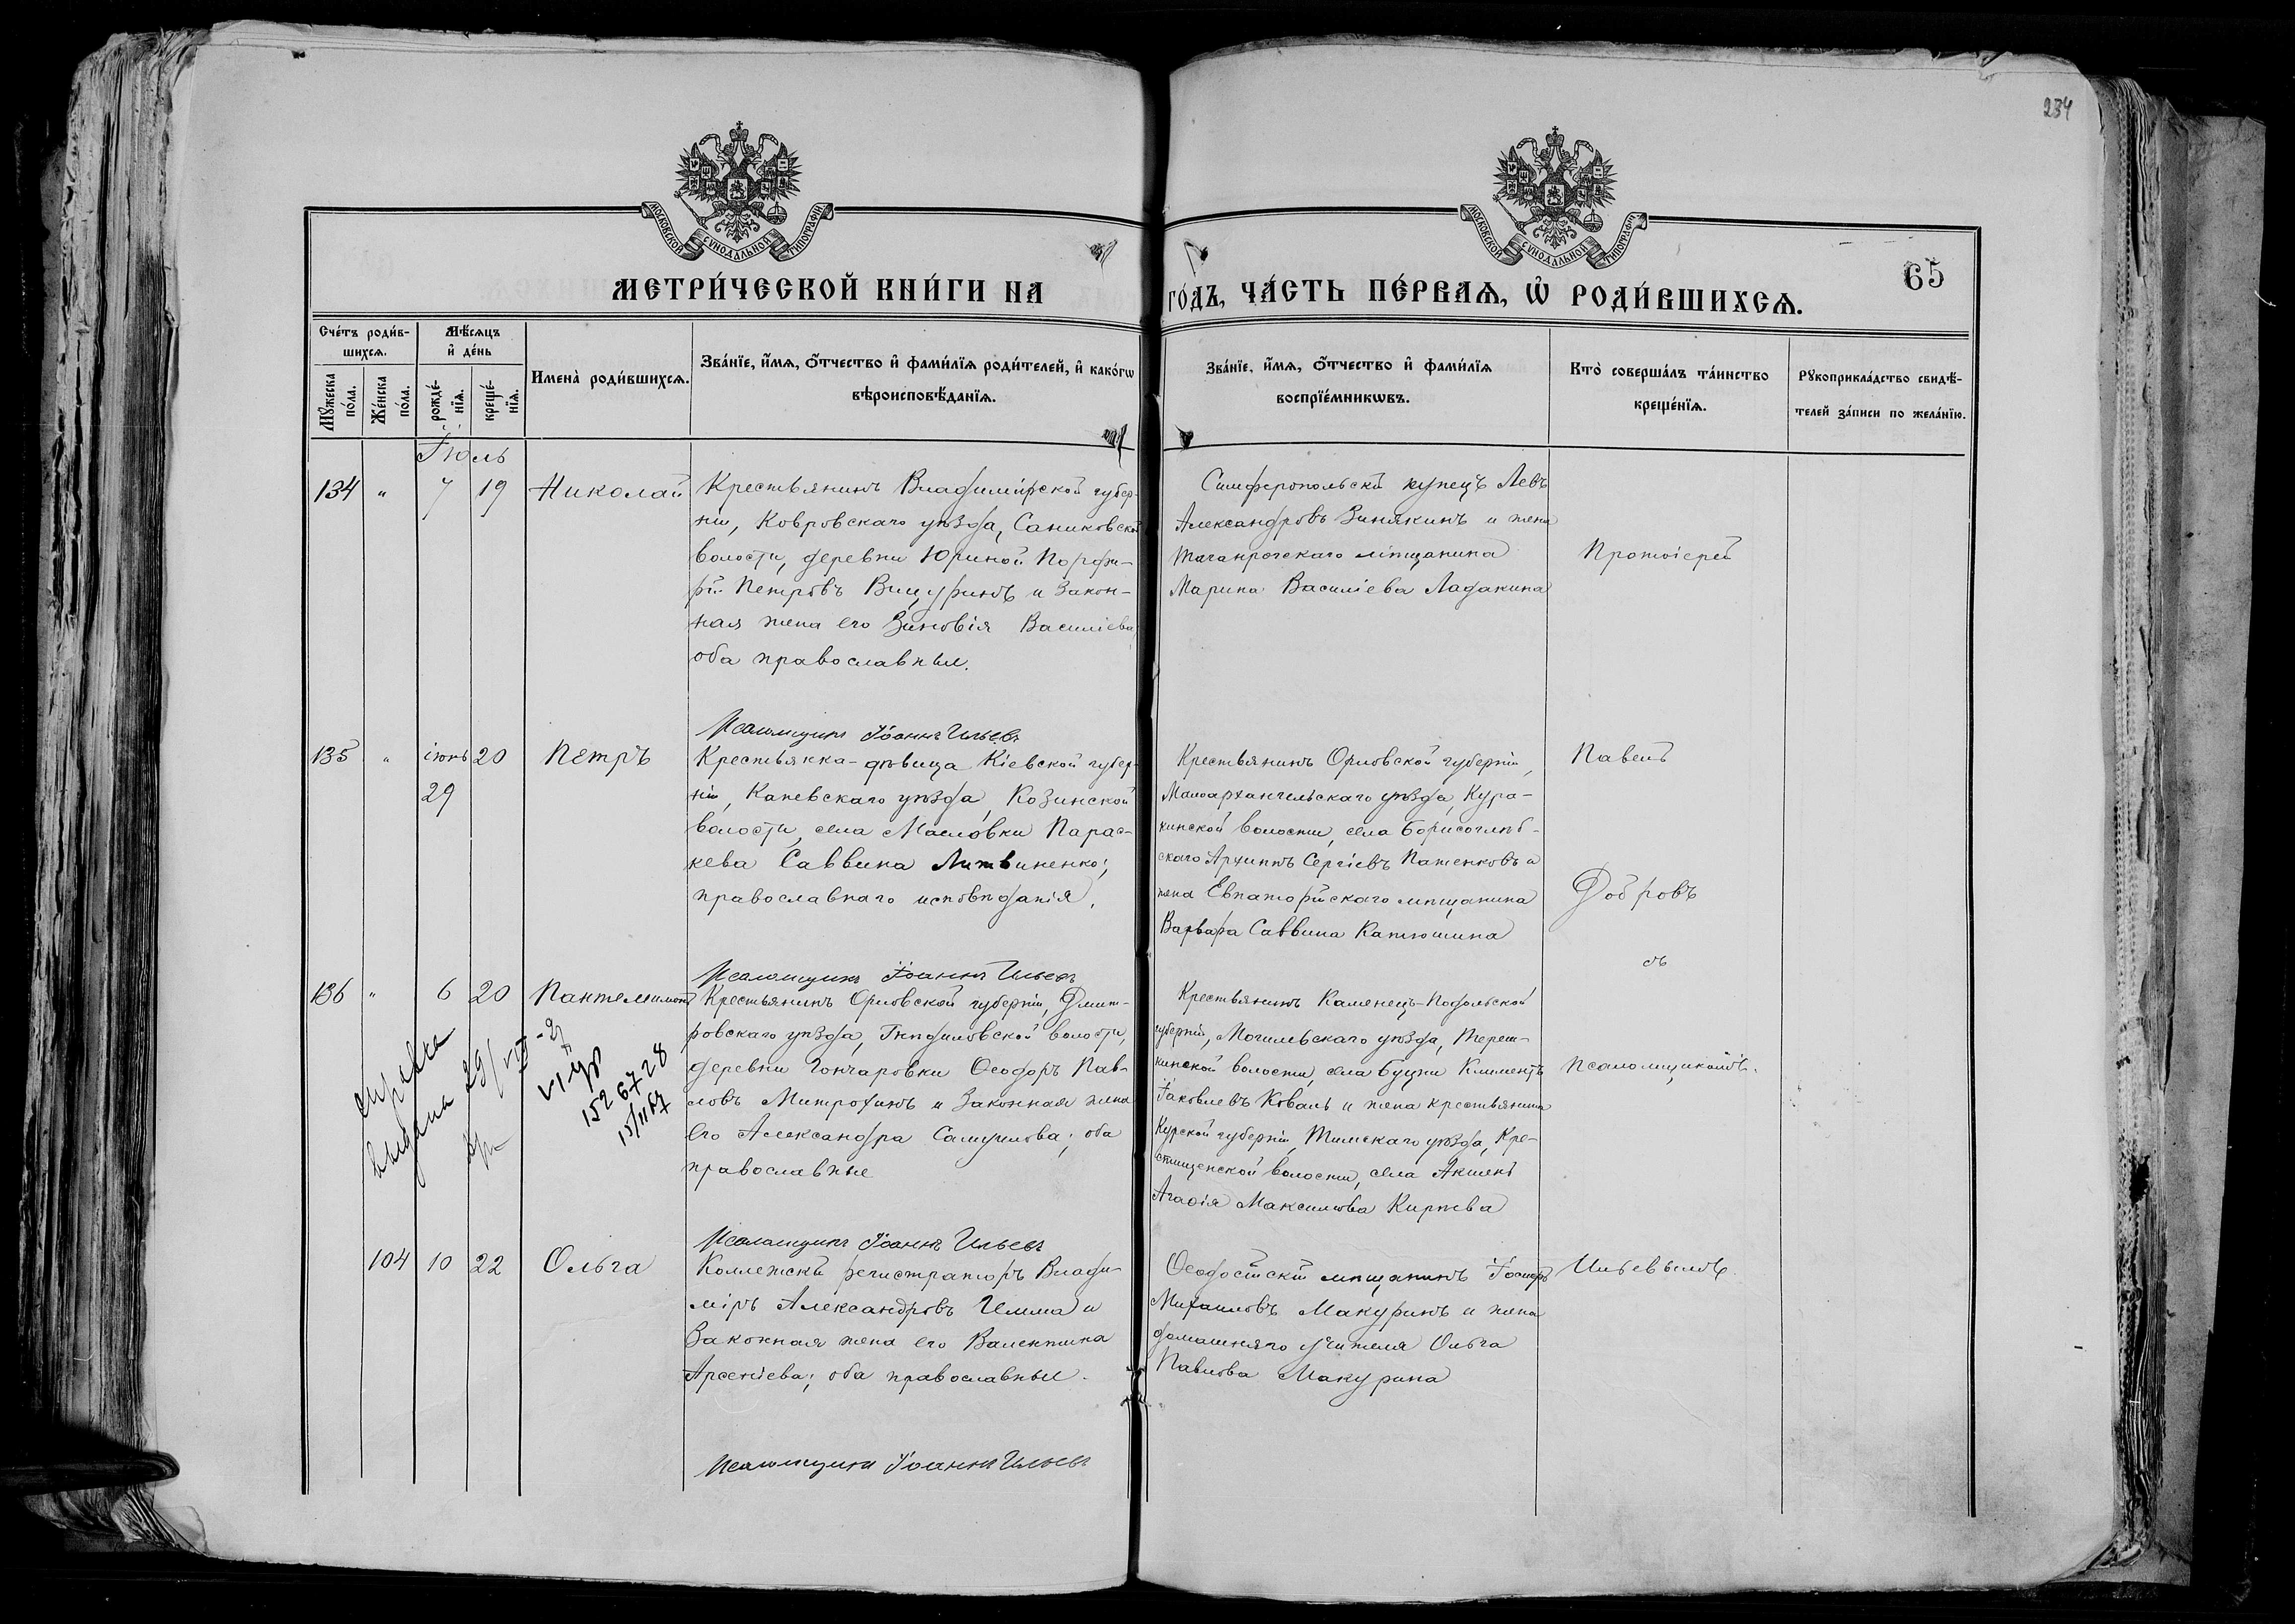 234
МОСКОВСКОЙ СѴНОДАЛЬНОЙ ТИПОГРАФІИ
МОСКОВСКОЙ СѴНОДАЛЬНОЙ ТИПОГРАФІИ
МЕТРИ́ЧЕСКОЙ КНИ́ГИ НА
ГО́ДЪ, ЧА́СТЬ ПЕ́РВАѦ, Ѽ РОДИ́ВШИХСѦ.
65
Сче́тъ роди́в-
шихсѧ.
Мѣ́сѧцъ
и҆ де́нь
Мꙋ́жеска
по́ла.
Же́нска
по́ла.
рожде́-
нїѧ.
креще́-
нїѧ.
Имена̀ роди́вшихсѧ.
Зва́нїе, и҆́мѧ, ѻ҆́тчество и҆ фами́лїѧ роди́телей, и҆ како́гѡ
вѣроисповѣ́данїѧ.
Зва́нїе, и҆́мѧ, ѻ҆́тчество и҆ фами́лїѧ
воспрїе́мникѡвъ.
Кто̀ соверша́лъ та́инство
креще́нїѧ.
Рꙋкоприкла́дство свидѣ́-
телей за́писи по жела́нїю.
Іюль
134 " 7 19 Николай
Крестьянинъ Владимірской губер-
ніи, Ковровскаго уѣзда, Саниковской
волости, деревни Юриной Порфи-
рій Петровъ Вицуринъ и закон-
ная жена его Зиновія Василіева,
оба православные.
Псаломщикъ Іоаннъ Ильевъ
Симферопольскій купецъ Левъ
Александровъ Зинякинъ и жена
Таганрогскаго мѣщанина
Марина Василіева Ладакина
Протоіерей
135 " іюнь 20 Петръ
29
Крестьянка-дѣвица Кіевской губер-
ніи, Каневскаго уѣзда, Козинской
волости, села Масловки Парас-
кева Саввина Литвиненко;
православнаго исповѣданія.
Псаломщикъ Іоаннъ Ильевъ
Крестьянинъ Орловской губерніи,
Малоархангельскаго уѣзда, Кура-
кинской волости, села Борисоглѣб-
скаго Архипъ Сергіевъ Патенковъ и
жена Евпаторійскаго мѣщанина
Варвара Саввина Катюшина
Павелъ
Добровъ
съ
136 " 6 20 Пантелеимонъ
справка
выдана 29/VIII-27
VI ЦР
1526728
15/II 67
Крестьянинъ Орловской губерніи, Дмит-
ровскаго уѣзда, Гнѣдиловской волости,
деревни Гончаровки Ѳеодоръ Пав-
ловъ Митрохинъ и законная жена
его Александра Самуилова; оба
православные
Псаломщикъ Іоаннъ Ильевъ
Крестьянинъ Каменецъ-Подольской
губерніи, Могильвскаго уѣзда, Тереш-
кинской волости, села Буцни Климентъ
Іаковлевъ Коваль и жена крестьянина
Курской губерніи, Тимскаго уѣзда, Кре-
стищенской волости, села
Агаѳія Максимова Киреева
псаломщикомъ
104 10 22 Ольга
Коллежскій регистраторъ Влади-
міръ Александровъ Шмма и
законная жена его Валентина
Арсеніева; оба православные.
Псаломщикъ Іоаннъ Ильевъ
Ѳеодосійскій мѣщанинъ Іосифъ
Михаиловъ Макуринъ и жена
домашняго учителя Ольга
Павлова Макурина
Ильевымъ.